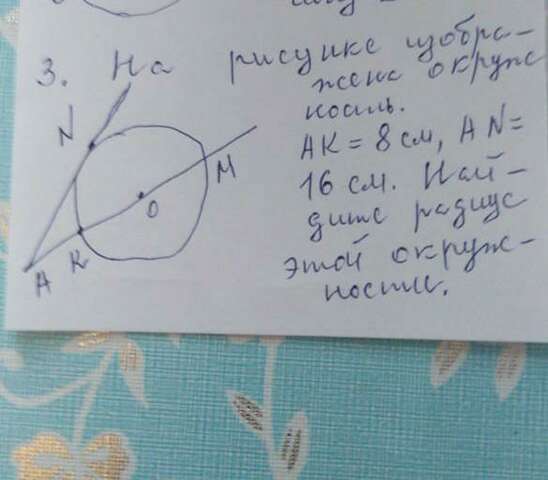 3. На рисунке изобра-
жена окруж
ность.
AK = 8 см, AN =
16 см. Най-
дите радиус
этой окруж-
ности.
N
M
O
K
A